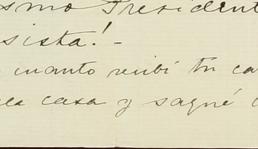 smo Presidente
sista! -
cuanto recibí tu ca
la casa y saqué